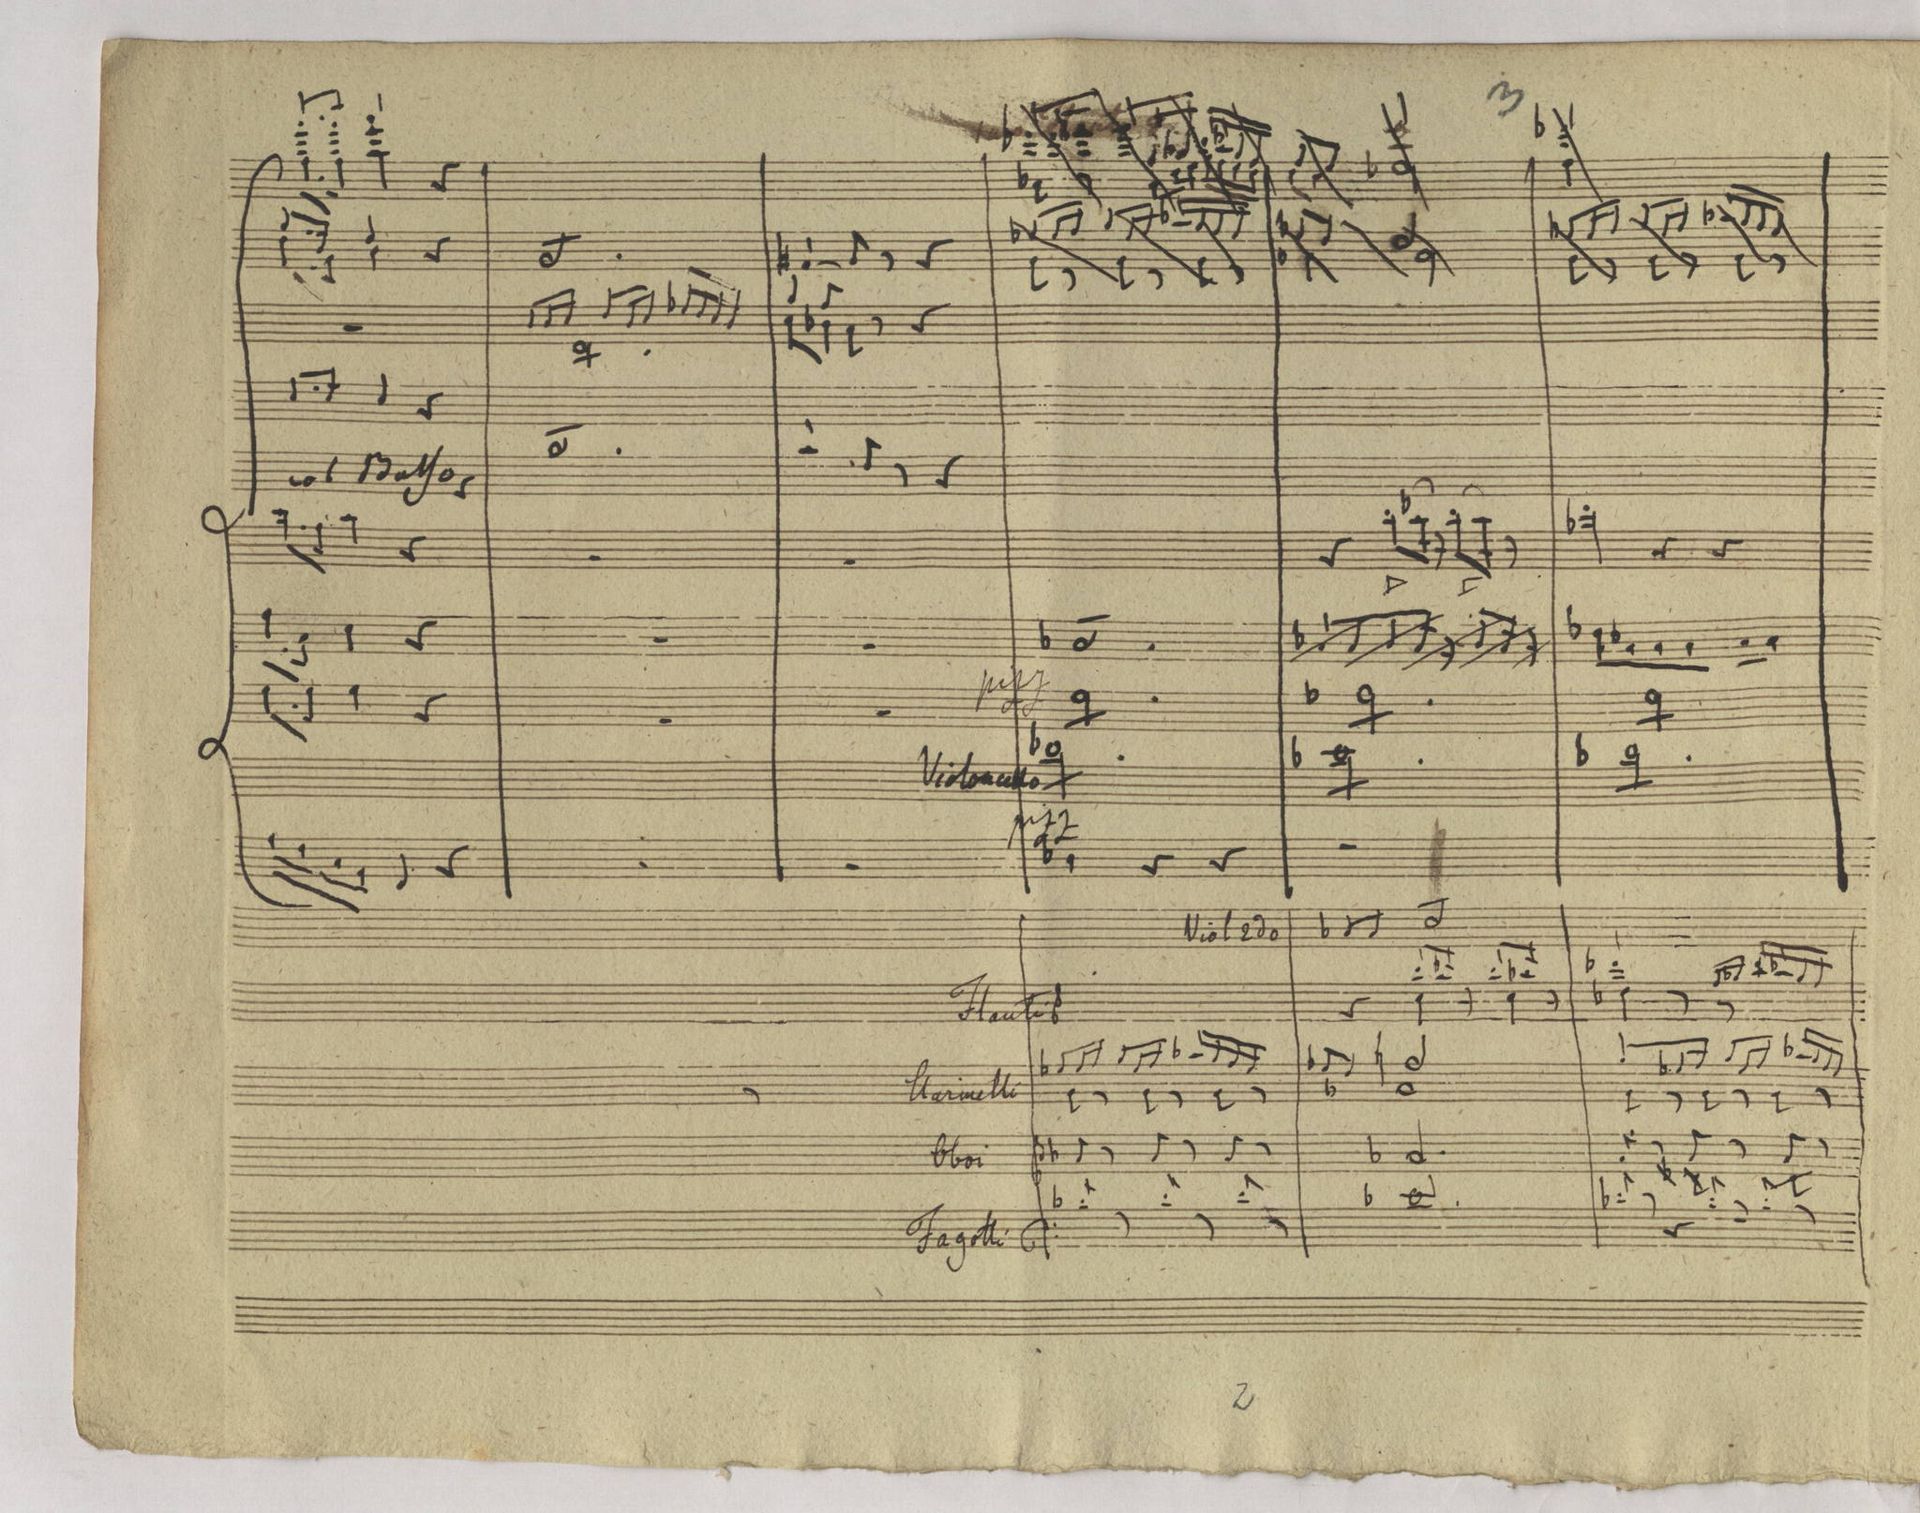 3
col Basso
pizz
Violoncello
pizz
Viol 2do
Flauti
Clarinetti
Oboi
Fagotti
2